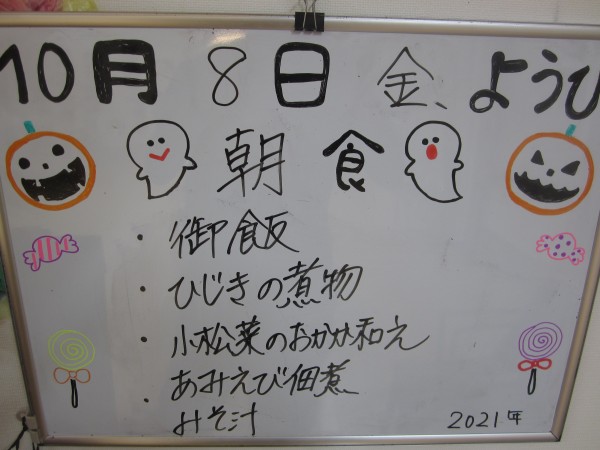 10月 8日 金、ようひ
朝食
・御飯
・ひじきの煮物
・小松菜のおかか和え
・あみえび佃煮
みそ汁
2021年